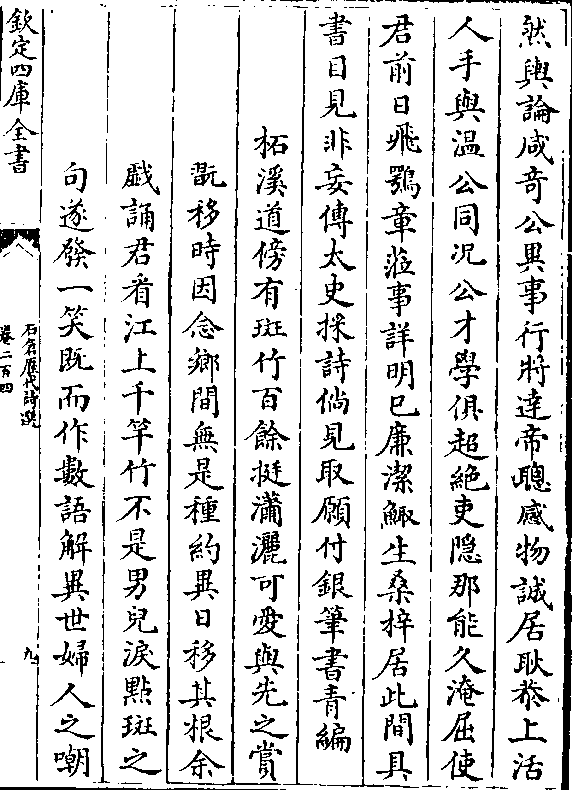 然輿論咸奇公異事行將達帝聰感物誠居耿㳟上活
人手與温公同况公才學俱超絶吏隠那能久淹屈使
君前日飛鶚章蒞事詳明已廉潔鯫生桑梓居此間具
書目見非妄傳太史採詩倘見取願付銀筆書青編
柘溪道傍有斑竹百餘挺瀟灑可愛與先之賞
翫移時因念鄉間無是種約異日移其根余
戱誦君看江上千竿竹不是男兒淚㸃斑之
句遂發一笑既而作數語解異世婦人之嘲
欽定四庫全書
石倉歷代詩選
卷二百四
九